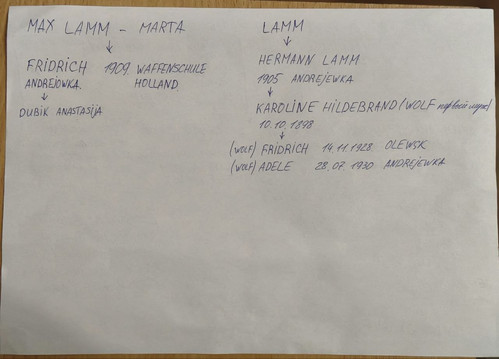 MAX LAMM - MARTA
FRIDRICH 1909. WAFFENSCHULE
ANDREJOWKA. HOLLAND
DUBIK ANASTASIJA
LAMM
HERMANN LAMM
1905 ANDREJEWKA
KAROLINE HILDEBRAND (WOLF
10.10.1898
(WOLF) FRIDRICH 14.11.1928. OLEWSK
(WOLF) ADELE 28.07.1930 ANDREJEWKA